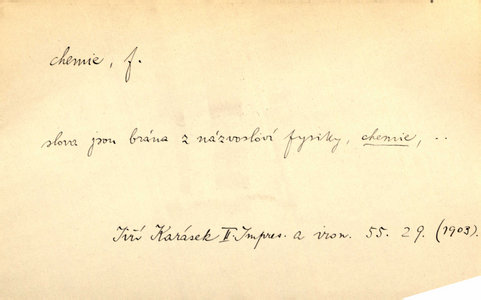 chemie, f.
slova jsou brána z názvosloví fysiky, chemie, ..
Jiří Karásek II. Impres. a iron. 55. 29. (1903).